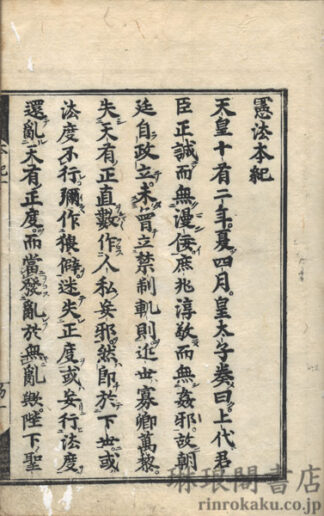 憲法本紀
天皇十有二年夏四月皇太子奏曰上代君
臣正誠而無漫佞庶兆淳敬而無姦邪故朝
廷自政立未曾立禁制軌則近世寡卿萬黎
失天有正直數作人私妄邪然即於下世或
法度不行彌作復僻迷失正度或妄行法度
還亂天有正度而當發亂於無亂與陛下聖
琳琅閣書店
rinrokaku.co.jp